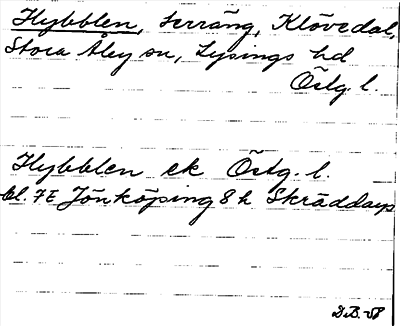 Hybblen, terräng, Klövedal,
Stora Åby sn, Lysings hd
Östg. l.
Hybblen ek Östg. l.
bl. 7E Jönköping 8 h Skräddarp
D.B. -58